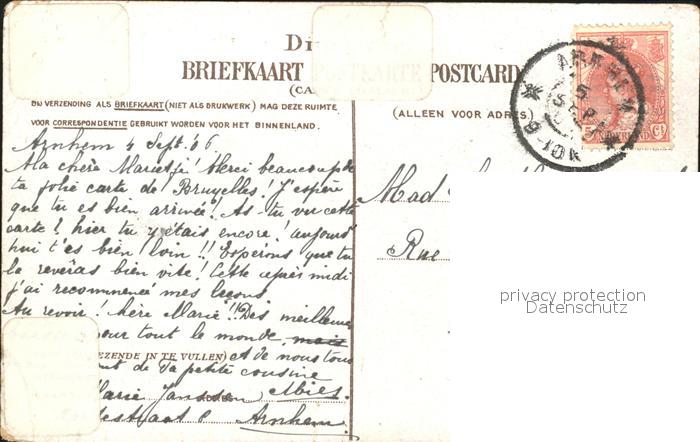 Di
BRIEFKAART POSTKARTE POSTCARD
(CA
BIJ VERZENDING ALS BRIEFKAART (NIET ALS DRUKWERK) MAG DEZE RUIMTE
VOOR CORRESPONDENTIE GEBRUIKT WORDEN VOOR HET BINNENLAND.
(ALLEEN VOOR ADRES.)
Arnhem 4 Sept. '06
Ma chère Marietje! Merci beaucoup de
ta jolie carte de Bruxelles! J'espère
que tu es bien arrivée! As-tu vu cette
carte? hier tu y étais encore! aujourd'
hui t'es bien loin!! Espérons que tu
la reverras bien vite! Cette après midi
j'ai recommencé mes leçons
Au revoir! chère Marie!! Des meilleures
pour tout le monde, mais
EZENDE IN TE VULLEN) et de nous tous
de ta petite cousine
Marie Janssen Mies.
straat 8 Arnhem
Mad
Rue
ARNHEM
5
privacy protection
Datenschutz